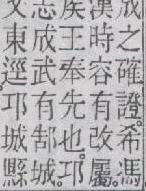 成之確證。希馮
漢時容有改屬。
侯王奉先也。邛
志成武有郜城。
文東逕邛城縣